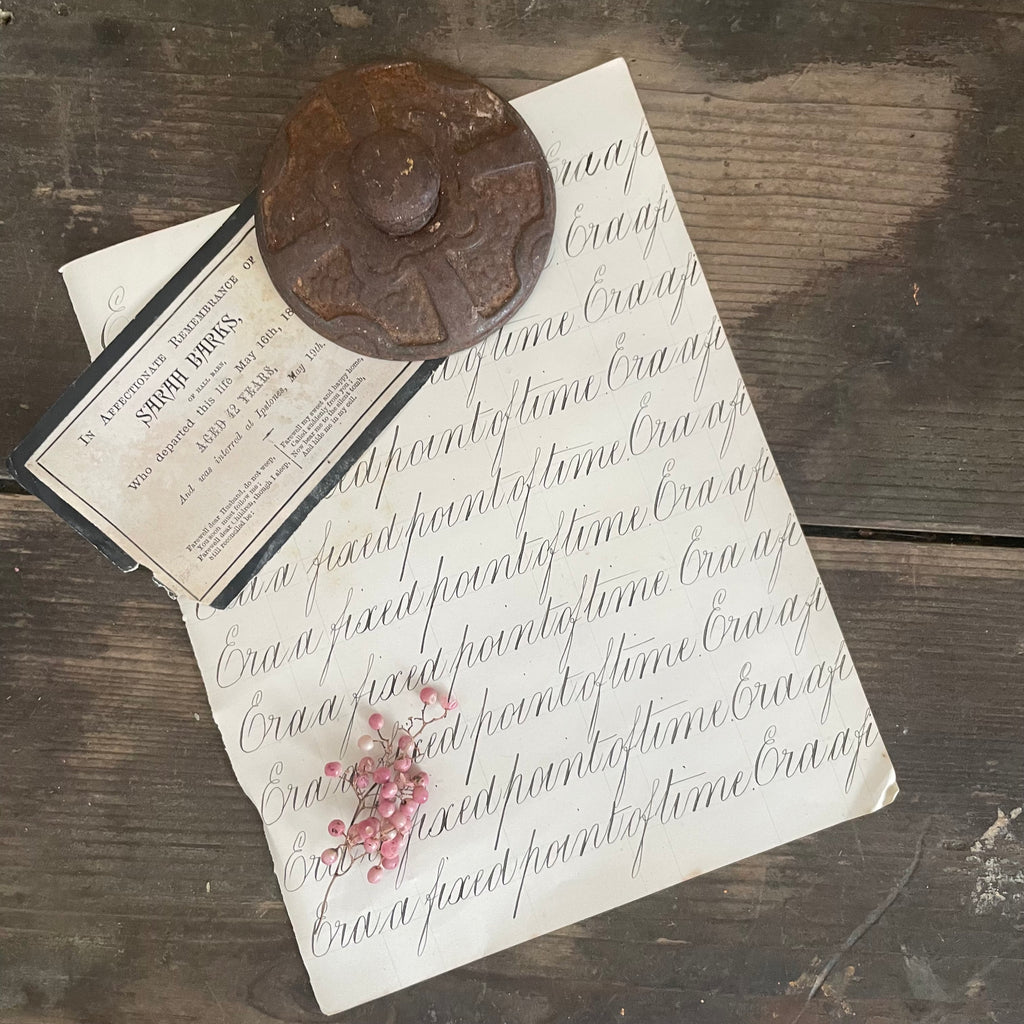 IN AFFECTIONATE REMEMBRANCE OF
SARAH BARKS,
OF HALL BARN,
Who departed this life May 16th, 18
AGED 42 YEARS,
And was interred at Ipstones, May 19th,
Farewell dear Husband, do not weep,
You soon must follow me;
Farewell dear Children, though I sleep,
Still reconciled be;
Farewell my sweet and happy home,
Called suddenly from you;
Now bear me to the silent tomb,
And hide me in my cell.
Era a fi
Era a fi
of time Era a fi
point of time. Era a fi
Era a fixed point of time. Era a fi
Era a fixed point of time. Era a fi
Era a fixed point of time. Era a fi
Era a fixed point of time. Era a fi
Era a fixed point of time. Era a fi
Era a fixed point of time. Era a fi